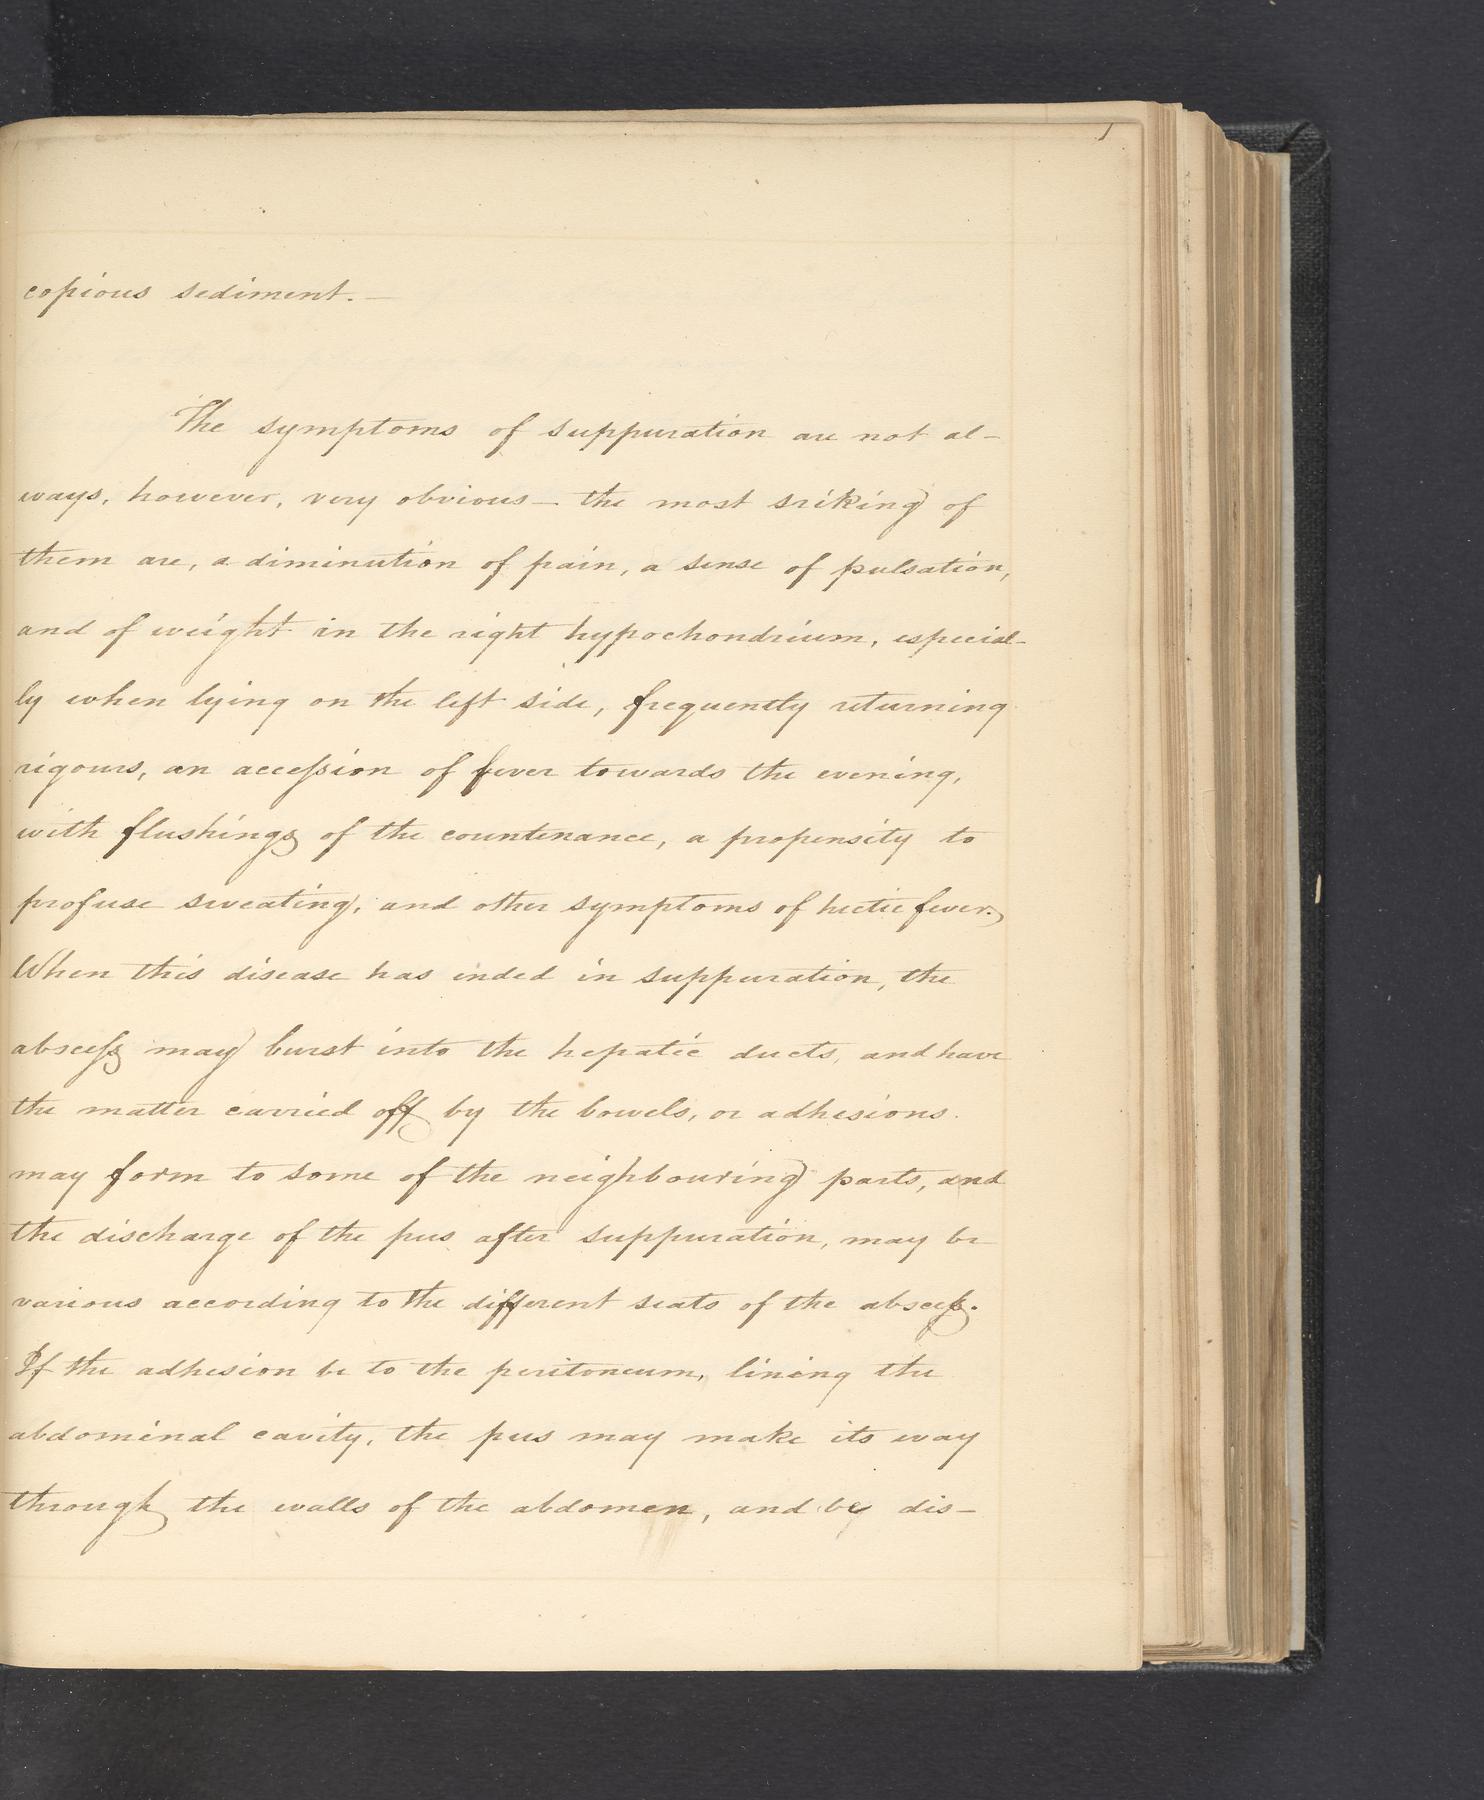 copious sediment.—
The symptoms of suppuration are not al-
ways, however, very obvious— the most sriking of
them are, a diminution of pain, a sense of pulsation,
and of weight in the right hypochondrium, especial-
ly when lying on the left side, frequently returning
rigours, an accession of fever towards the evening,
with flushings of the countenance, a propensity to
profuse sweating, and other symptoms of hectic fever.
When this disease has ended in suppuration, the
abscess may burst into the hepatic ducts, and have
the matter carried off by the bowels, or adhesions.
may form to some of the neighbouring parts, and
the discharge of the pus after suppuration, may be
various according to the different seats of the abscess.
If the adhesion be to the peritoneum, lining the
abdominal cavity, the pus may make its way
through the walls of the abdomen, and be dis-